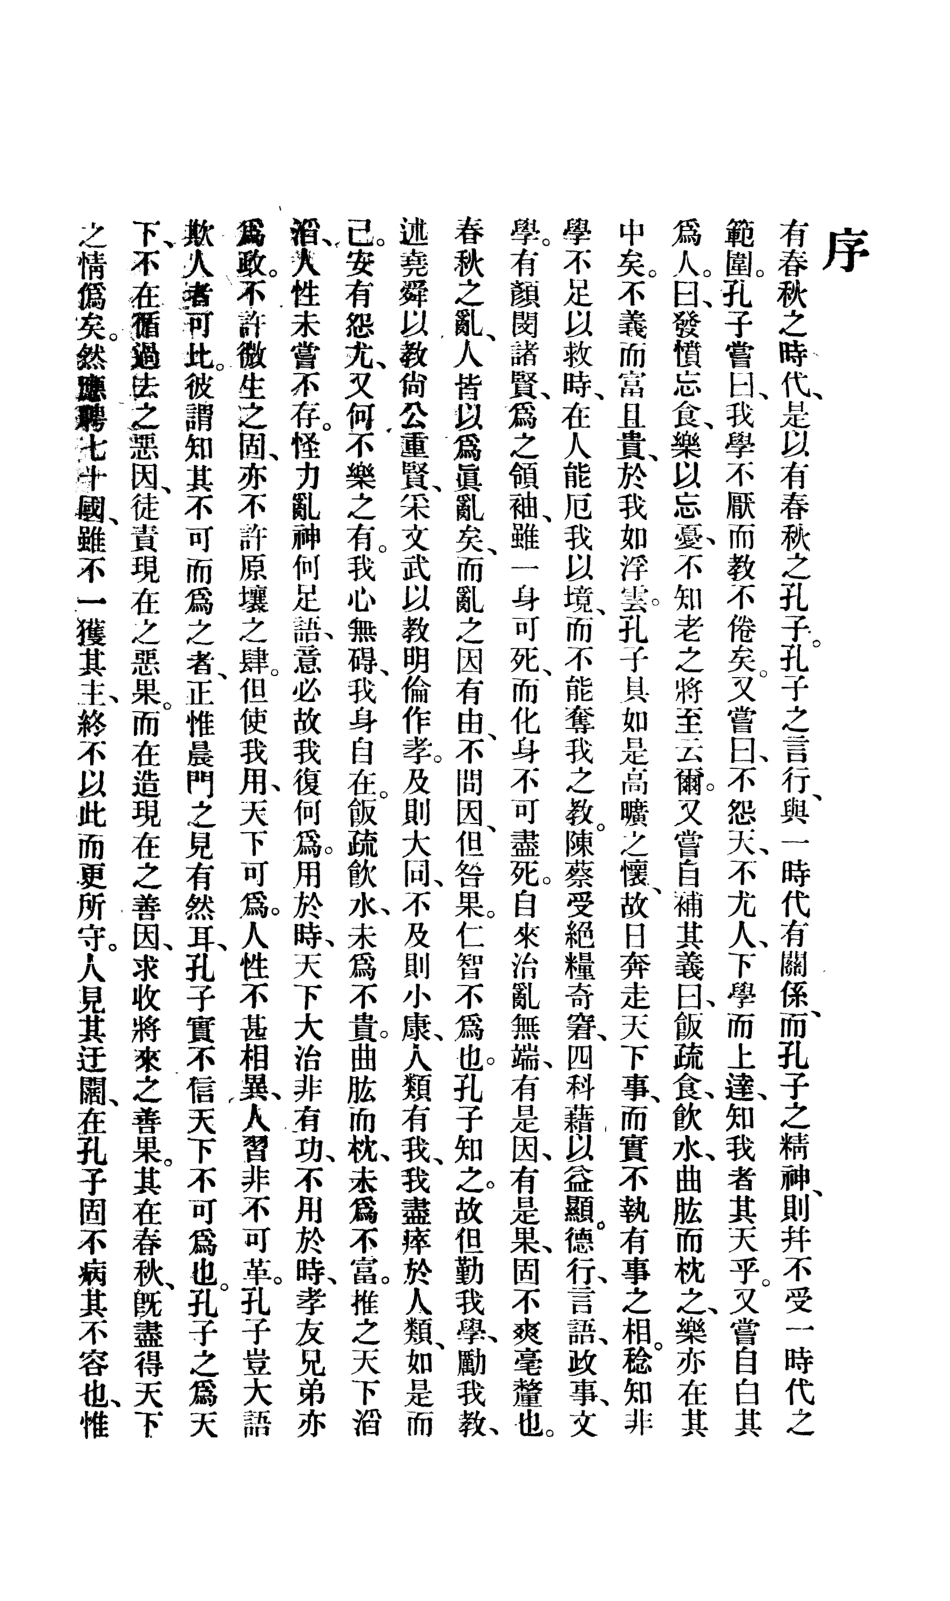 序
有春秋之時代、是以有春秋之孔子。孔子之言行、與一時代有關係、而孔子之精神、則幷不受一時代之
範圍。孔子嘗曰、我學不厭而教不倦矣。又嘗曰、不怨天、不尤人、下學而上達、知我者其天乎。又嘗自白其
爲人。曰、發憤忘食、樂以忘憂、不知老之將至云爾。又嘗自補其義曰、飯疏食、飲水、曲肱而枕之、樂亦在其
中矣。不義而富且貴、於我如浮雲。孔子具如是高曠之懷、故日奔走天下事、而實不執有事之相。稔知非
學不足以救時、在人能厄我以境、而不能奪我之教。陳蔡受絕糧奇窘、四科藉以益顯。德行、言語、政事、文
學。有顏閔諸賢、爲之領袖、雖一身可死、而化身不可盡死。自來治亂無端、有是因、有是果、固不爽毫釐也。
春秋之亂、人皆以爲眞亂矣、而亂之因有由、不問因、但咎果。仁智不爲也。孔子知之。故但勤我學、勵我教、
述堯舜以教尙公重賢、采文武以教明倫作孝。及則大同、不及則小康、人類有我、我盡瘁於人類、如是而
己。安有怨尤、又何不樂之有。我心無碍、我身自在。飯疏飲水、未爲不貴。曲肱而枕、未爲不富。推之天下滔
滔、人性未嘗不存。怪力亂神何足語、意必故我復何爲。用於時、天下大治非有功、不用於時、孝友兄弟亦
爲政。不許微生之固、亦不許原壤之肆。但使我用、天下可爲。人性不甚相異、人習非不可革。孔子豈大語
欺人者可比。彼謂知其不可而爲之者、正惟晨門之見有然耳、孔子實不信天下不可爲也。孔子之爲天
下、不在循過去之惡因、徒責現在之惡果。而在造現在之善因、求收將來之善果。其在春秋、旣盡得天下
之情僞矣。然應聘七十國、雖不一獲其主、終不以此而更所守。人見其迂闊、在孔子固不病其不容也、惟